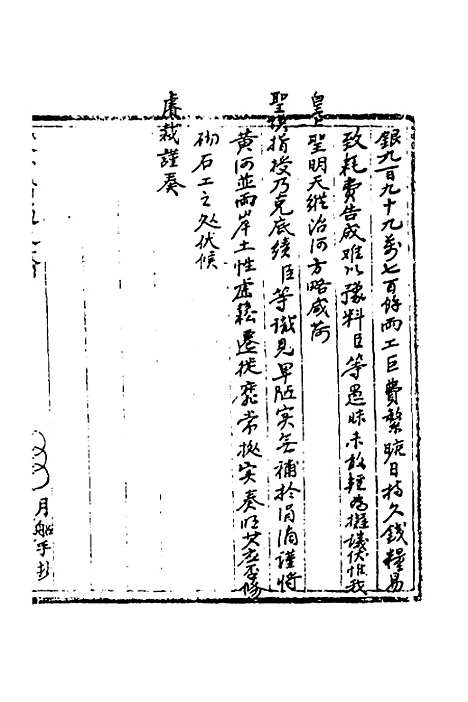 銀九百九十九萬七百餘兩工巨費繁曠日持久錢糧易
致耗費告成难以豫料臣等愚昧未敢輕為擬議伏惟我
皇上聖明天縱治河方略咸荷
聖謨指授乃克底績臣等識見卑陋实無補於涓滴謹將
黄河並兩岸土性虛鬆遷徙靡常据实奏明其应否修
砌石工之处伏候
睿裁謹奏
月船手抄